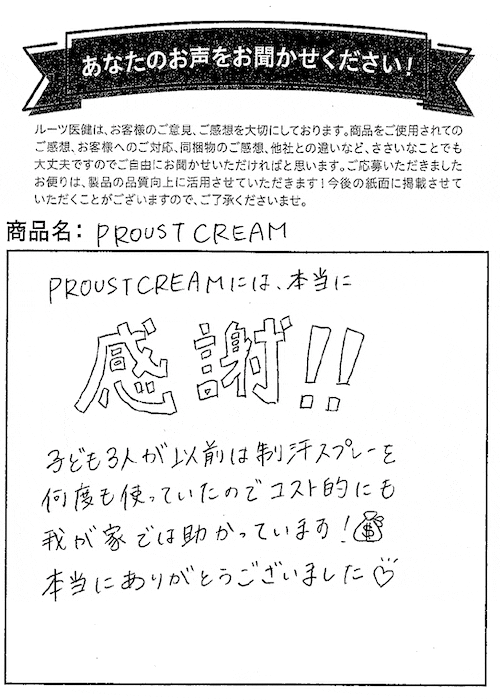 あなたのお声をお聞かせください!
ルーツ医健は、お客様のご意見、ご感想を大切にしております。商品をご使用されての
ご感想、お客様へのご対応、同梱物のご感想、他社との違いなど、ささいなことでも
大丈夫ですのでご自由にお聞かせいただければと思います。ご応募いただきました
お便りは、製品の品質向上に活用させていただきます!今後の紙面に掲載させて
いただくことがございますので、ご了承くださいませ。
商品名: PROUST CREAM
PROUSTCREAMには、本当に
感謝!!
子ども3人が以前は制汗スプレーを
何度も使っていたのでコスト的にも
我が家では助かっています!
本当にありがとうございました♡